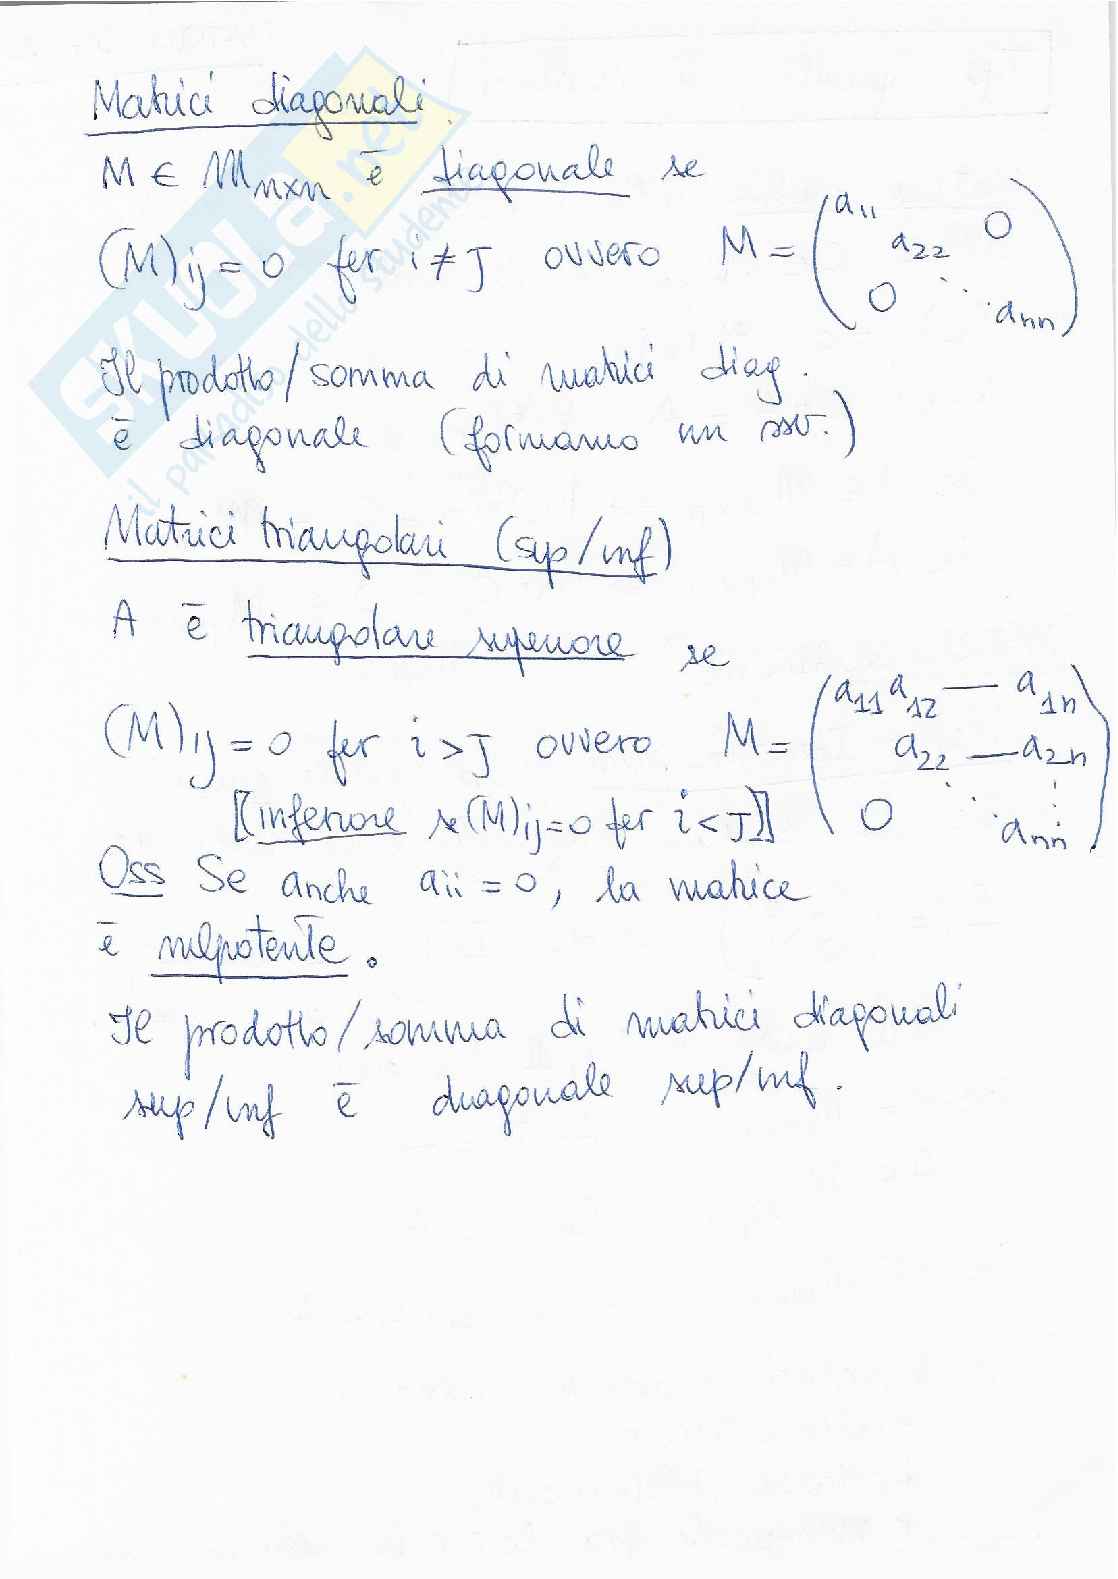 Matrici diagonali
M ∈ M_{n×n} è diagonale se
(M)_{ij} = 0 per i ≠ J ovvero M = ( a_{11} a_{22} 0 0 ⋱ a_{nn} )
Il prodotto/somma di matrici diag.
è diagonale (formano un ssv.)
Matrici triangolari (sup/inf)
A è triangolare superiore se
(M)_{ij} = 0 per i > J ovvero M = ( a_{11} a_{12} — a_{1n} a_{22} — a_{2n} 0 ⋱ ⋮ a_{nn} )
[[inferiore se (M)_{ij} = 0 per i < J]]
Oss Se anche a_{ii} = 0, la matrice
è nilpotente.
Il prodotto/somma di matrici diagonali
sup/inf è diagonale sup/inf.
SKUOLA.net
il paradiso dello studente